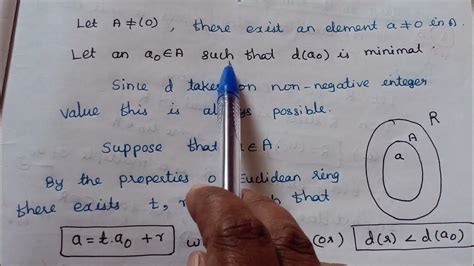 Let A ≠ (0), there exist an element a ≠ 0 in A.
Let an a₀ ∈ A such that d(a₀) is minimal.
Since d takes on non-negative integer
value this is always possible.
Suppose that ∈ A.
By the properties of Euclidean ring
there exists t, that
a = t.a₀ + r (or) d(r) < d(a₀)
R
A
a